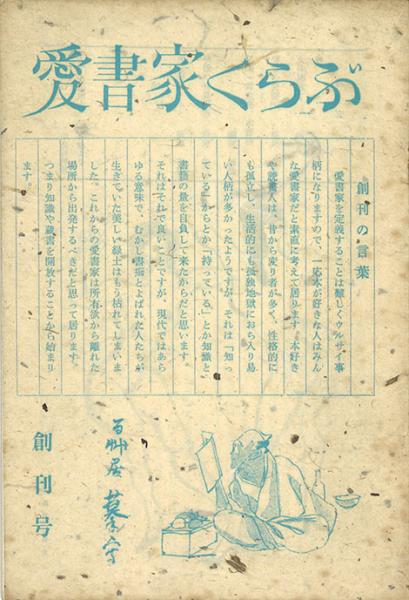 愛書家くらぶ
創刊の言葉
「愛書家を定義することは難しくウルサイ事
柄になりますので、一応本が好きな人はみん
な愛書家だと素直に考えて居ります。本好き
や読書人は、昔から変り者が多く、性格的に
も孤立し、生活的にも孤独地獄におち入り易
い人柄が多かったようですが、それは「知っ
ている」からとか「持っている」とか知識と
書籍の量を自負して来たからだと思います。
それはそれで良いことですが、現代ではあら
ゆる意味で、むかし書痴とよばれた人たちが
生きていた美しい緑土はもう枯れてしまいま
した。これからの愛書家は所有欲から離れた
場所から出発するべきだと思って居ります。
つまり知識や蔵書を開放することから始まり
ます。
創刊号